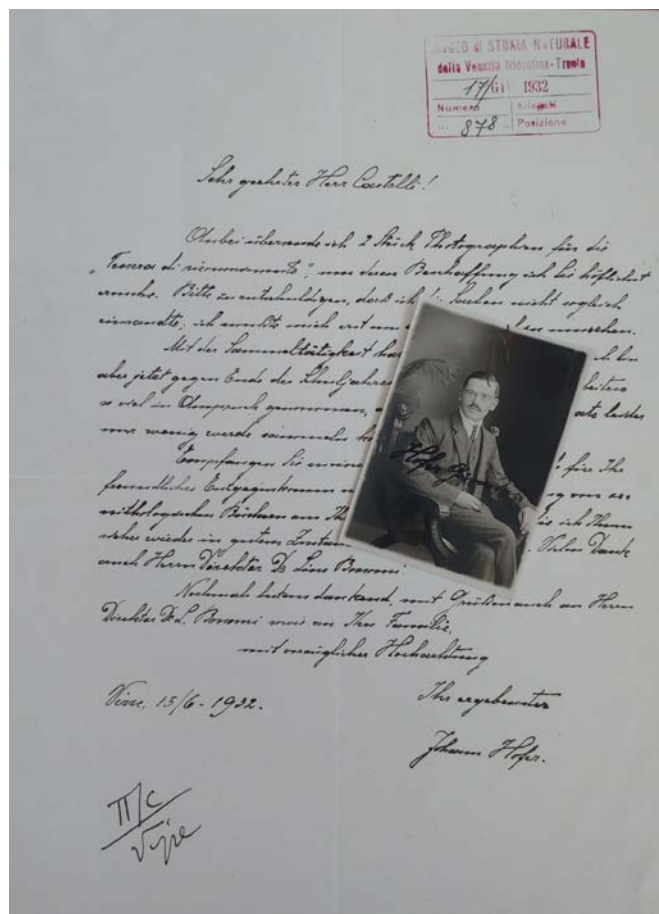 MUSEO di STORIA NATURALE
della Venezia Tridentina - Trento
17/GIU 1932
Numero Allegati
878 Posizione
Sehr geehrter Herr Castelli!
Anbei übersende ich 2 Stück Photographien für die
"Tessera di riconoscimento", um deren Beschaffung ich Sie höflichst
ersuche. Bitte zu entschuldigen, daß ich die Sachen nicht sogleich
einsandte; ich mußte mich erst um umsehen.
Mit der Sammeltätigkeit ich bin
aber jetzt gegen Ende des Schuljahres
so viel in Anspruch genommen, leider
nur wenig werde sammeln
Empfangen Sie meine für Ihr
freundliches Entgegenkommen von or-
nithologischen Büchern aus ich Ihnen
wieder in gutem Vielen Dank
auch Herrn Direktor Dr. Lino Bonomi.
Nochmals bestens dankend, mit Grüßen auch an Herrn
Direktor Dr. L. Bonomi sowie an Ihre Familie,
mit vorzüglicher Hochachtung
Ihr ergebenster
Johann Hofer.
15/6-1932.
Hofer
II/c